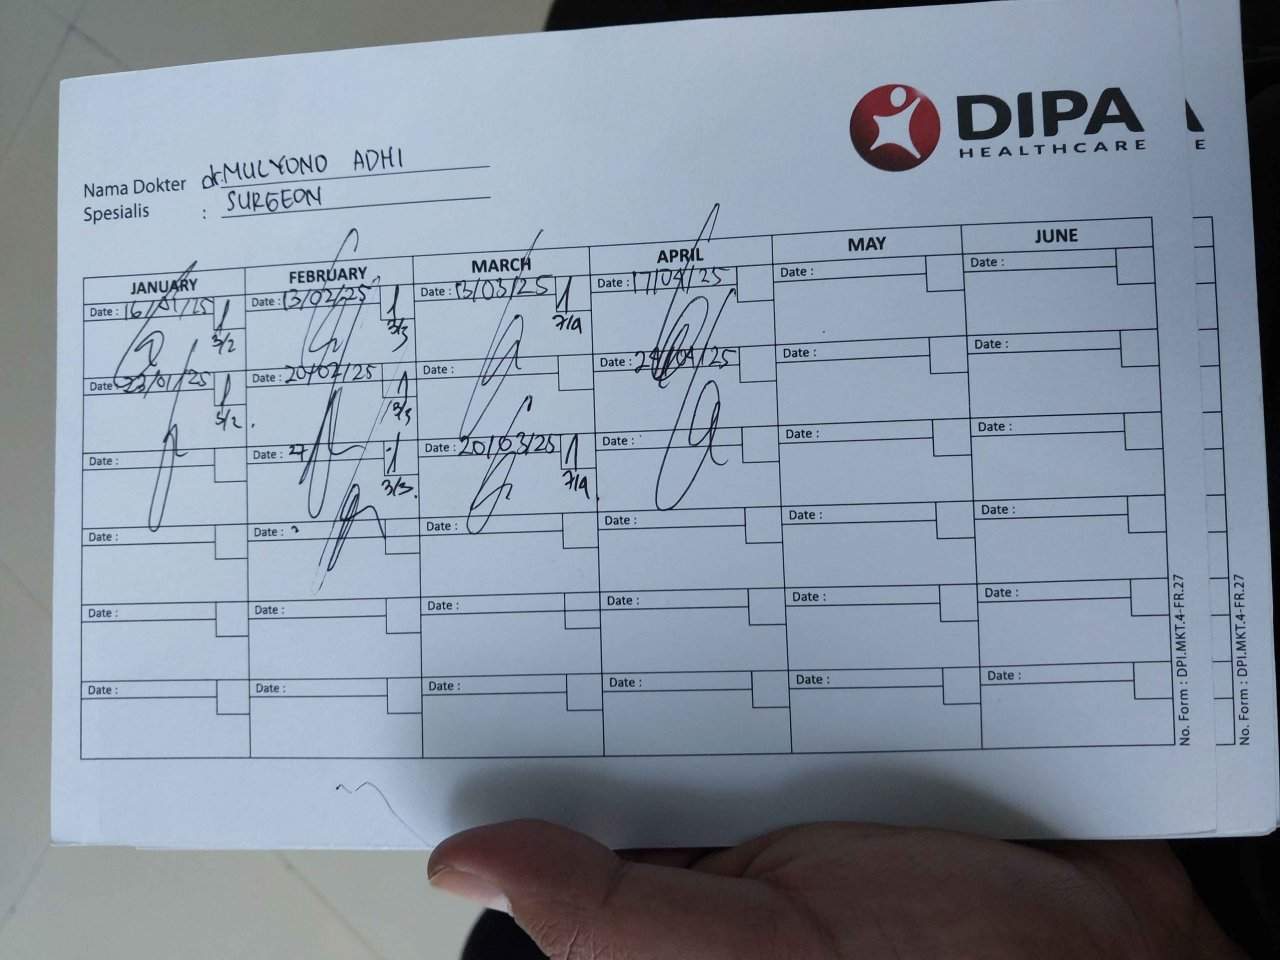 DIPA
HEALTHCARE
E
Nama Dokter dr. MULYONO ADHI
Spesialis : SURGEON
JANUARY FEBRUARY MARCH APRIL MAY JUNE
Date : 16/01/25 Date : 13/02/25 Date : 13/03/25 Date : 17/04/25 Date : Date :
3/2 3/3 7/4
Date : 23/01/25 Date : 20/02/25 Date : Date : 24/04/25 Date : Date :
3/2 3/3
Date : Date : 27 Date : 20/03/25 Date : Date : Date :
3/3 7/4
Date : Date : Date : Date : Date : Date :
Date : Date : Date : Date : Date : Date :
Date : Date : Date : Date : Date : Date :
No. Form : DPI.MKT.4-FR.27
No. Form : DPI.MKT.4-FR.27